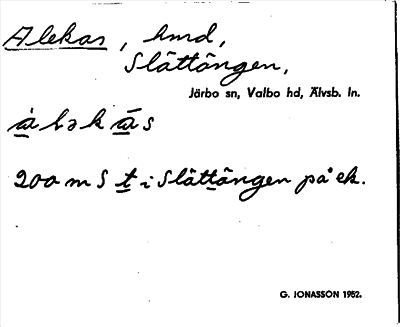 Alekas, hmd,
Slättängen,
Järbo sn, Valbo hd, Älvsb. ln.
200 m S t i Slättängen på ek.
G. JONASSON 1952.